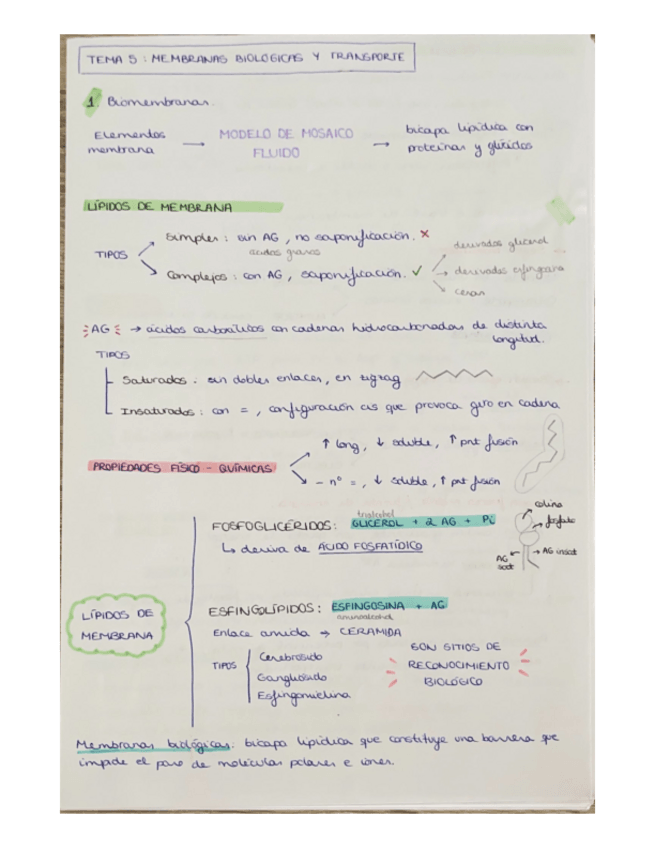 TEMA 5 : MEMBRANAS BIOLÓGICAS Y TRANSPORTE
1. Biomembranas.
Elementos membrana → MODELO DE MOSAICO FLUIDO → bicapa lipídica con proteínas y glúcidos
LÍPIDOS DE MEMBRANA
TIPOS
Simples : sin AG, no saponificación. ✗
ácidos grasos
Complejos : con AG, saponificación. ✓
derivados glicerol
→ derivados esfingosina
ceras
AG → ácidos carboxílicos con cadenas hidrocarbonadas de distinta
longitud.
TIPOS
Saturados : sin dobles enlaces, en zigzag
Insaturados : con = , configuración cis que provoca giro en cadena
PROPIEDADES FÍSICO - QUÍMICAS
↑ long, ↓ soluble, ↑ pnt fusión
- nº = , ↓ soluble, ↑ pnt fusión
LÍPIDOS DE
MEMBRANA
trialcohol
FOSFOGLICÉRIDOS: GLICEROL + 2 AG + Pi
↳ deriva de ÁCIDO FOSFATÍDICO
colina
fosfato
AG sat
AG insat
ESFINGOLÍPIDOS: ESFINGOSINA + AG
aminoalcohol
Enlace amida → CERAMIDA
TIPOS
Cerebrósido
Gangliósido
Esfingomielina
SON SITIOS DE
RECONOCIMIENTO
BIOLÓGICO
Membranas biológicas: bicapa lipídica que constituye una barrera que
impide el paso de moléculas polares e iones.